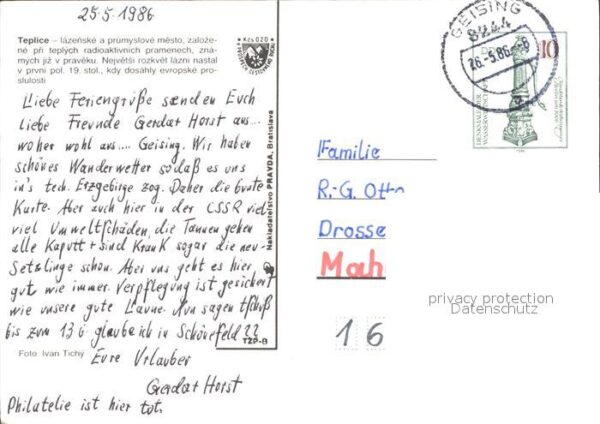 25.5.1986
Teplice – lázeňské a průmyslové město, založe-
né při teplých radioaktivních pramenech, zná-
mých již v pravěku. Největší rozkvět lázní nastal
v první pol. 19. stol., kdy dosáhly evropské pro-
slulosti
Kčs 020
Liebe Feriengrüße saenden Euch
Liebe Freunde Gerdat Horst aus...
woher wohl aus.... Geising. Wir haben
schönes Wanderwetter sodaß es uns
in's tech. Erzgebirge zog. Daher die bunte
Karte. Aber auch hier in der CSSR viel
viel Umweltschäden, die Tannen gehen
alle Kaputt + sind Krank sogar die neu-
Setzlinge schon. Aber uns geht es hier
gut wie immer. Verpflegung ist gesichert
wie unsere gute Laune. Nun sagen tschüß
bis zum 13.6 glaube ich in Schönefeld ??
Eure Urlauber
Gerdat Horst
Philatelie ist hier tot.
Foto: Ivan Tichý
TZP-B
Nakladatelstvo PRAVDA, Bratislava
GEISING
8244
26.-5.86.-8
DDR
10
DENKMALE DER
WASSERWIRTSCHAFT
Familie
R.-G. Otto
Drosse
Mah
16
privacy protection
Datenschutz